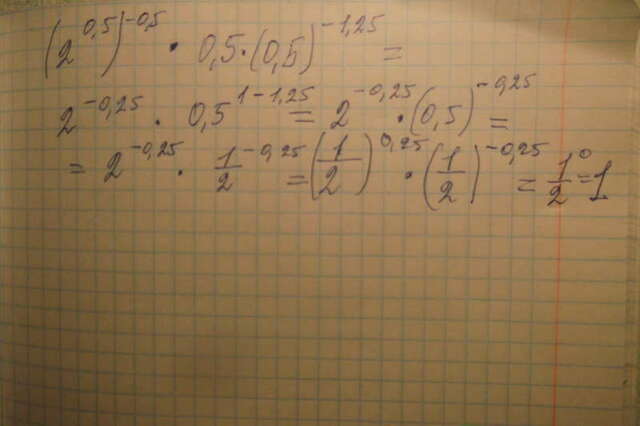 (2^0,5)^-0,5 · 0,5·(0,5)^-1,25 =
2^-0,25 · 0,5^1-1,25 = 2^-0,25 · (0,5)^-0,25 =
= 2^-0,25 · 1/2^-0,25 = (1/2)^0,25 · (1/2)^-0,25 = 1/2^0 = 1